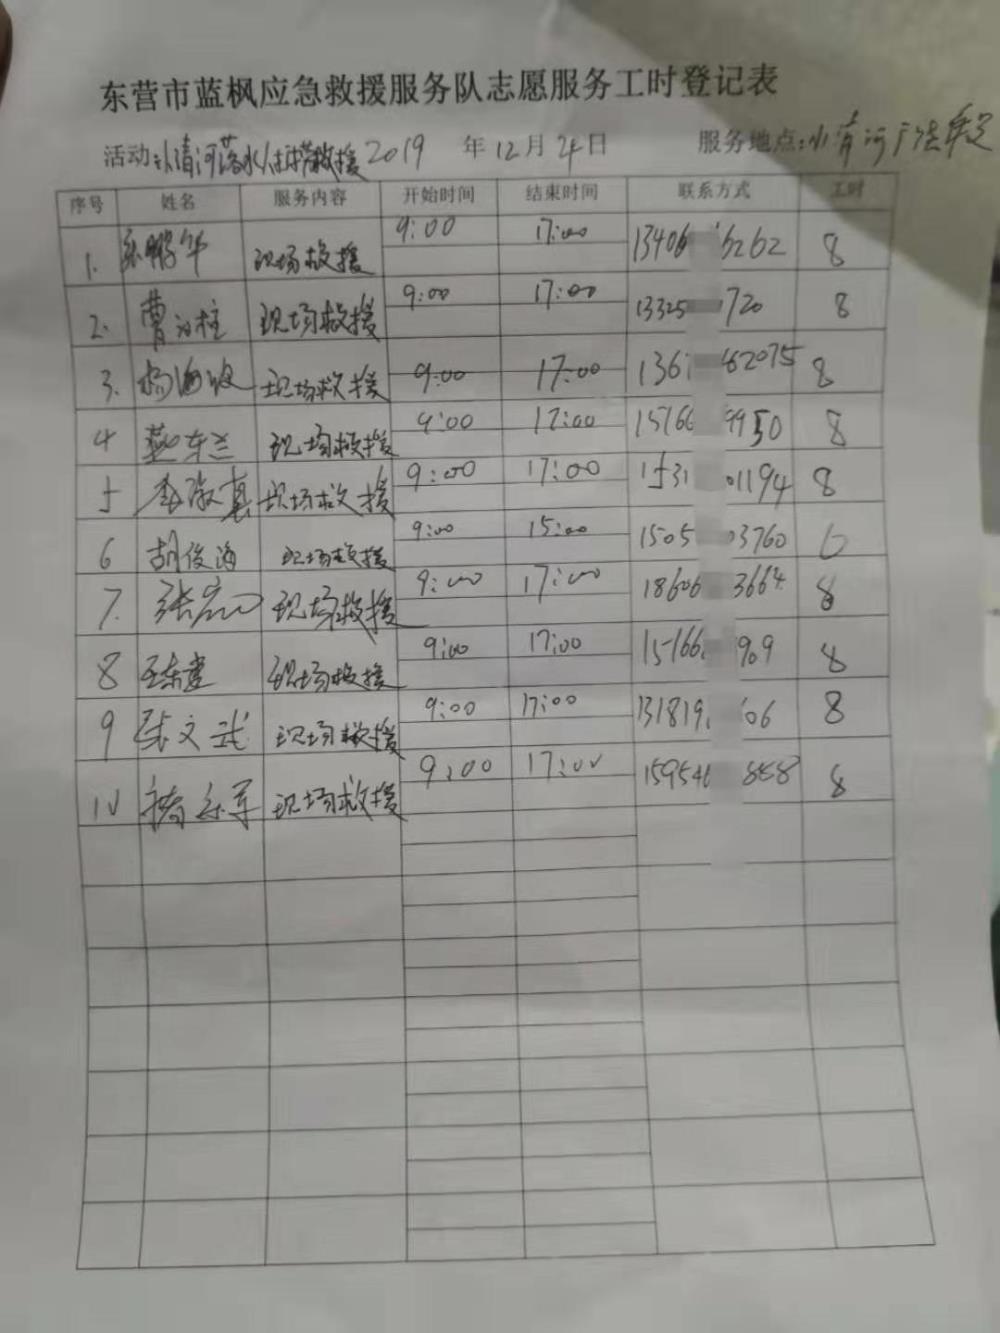 东营市蓝枫应急救援服务队志愿服务工时登记表
活动:小清河落水人打捞救援 2019 年 12 月 24 日 服务地点:小清河广饶段
序号 姓名 服务内容 开始时间 结束时间 联系方式 工时
1. 现场救援 9:00 17:00 13406 6262 8
2. 曹 柱 现场救援 9:00 17:00 13325 720 8
3. 杨海波 现场救援 9:00 17:00 136 62075 8
4 燕东兰 现场救援 9:00 17:00 15766 9950 8
5 李 真 现场救援 9:00 17:00 1531 01194 8
6 胡俊海 现场救援 9:00 15:00 1505 03760 6
7. 张 现场救援 9:00 17:00 18606 3664 8
8 王东建 现场救援 9:00 17:00 15166 909 8
9 张文武 现场救援 9:00 17:00 131819 606 8
10 现场救援 9:00 17:00 15954 888 8